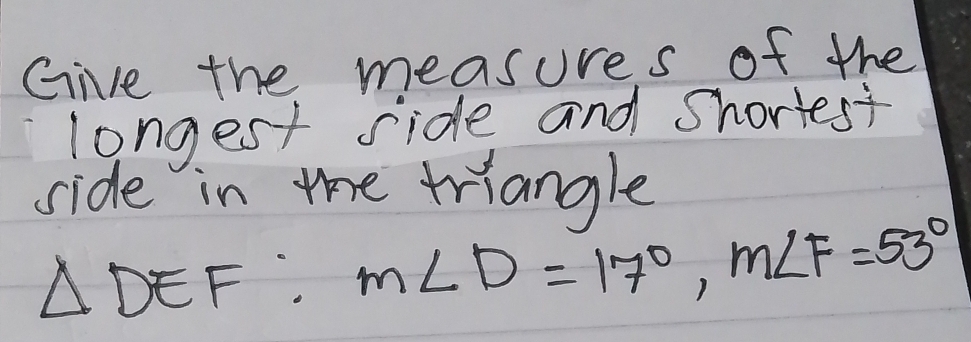 Give the measures of the
longest side and shortest
side in the triangle
Δ DEF : m∠D = 17°, m∠F = 53°